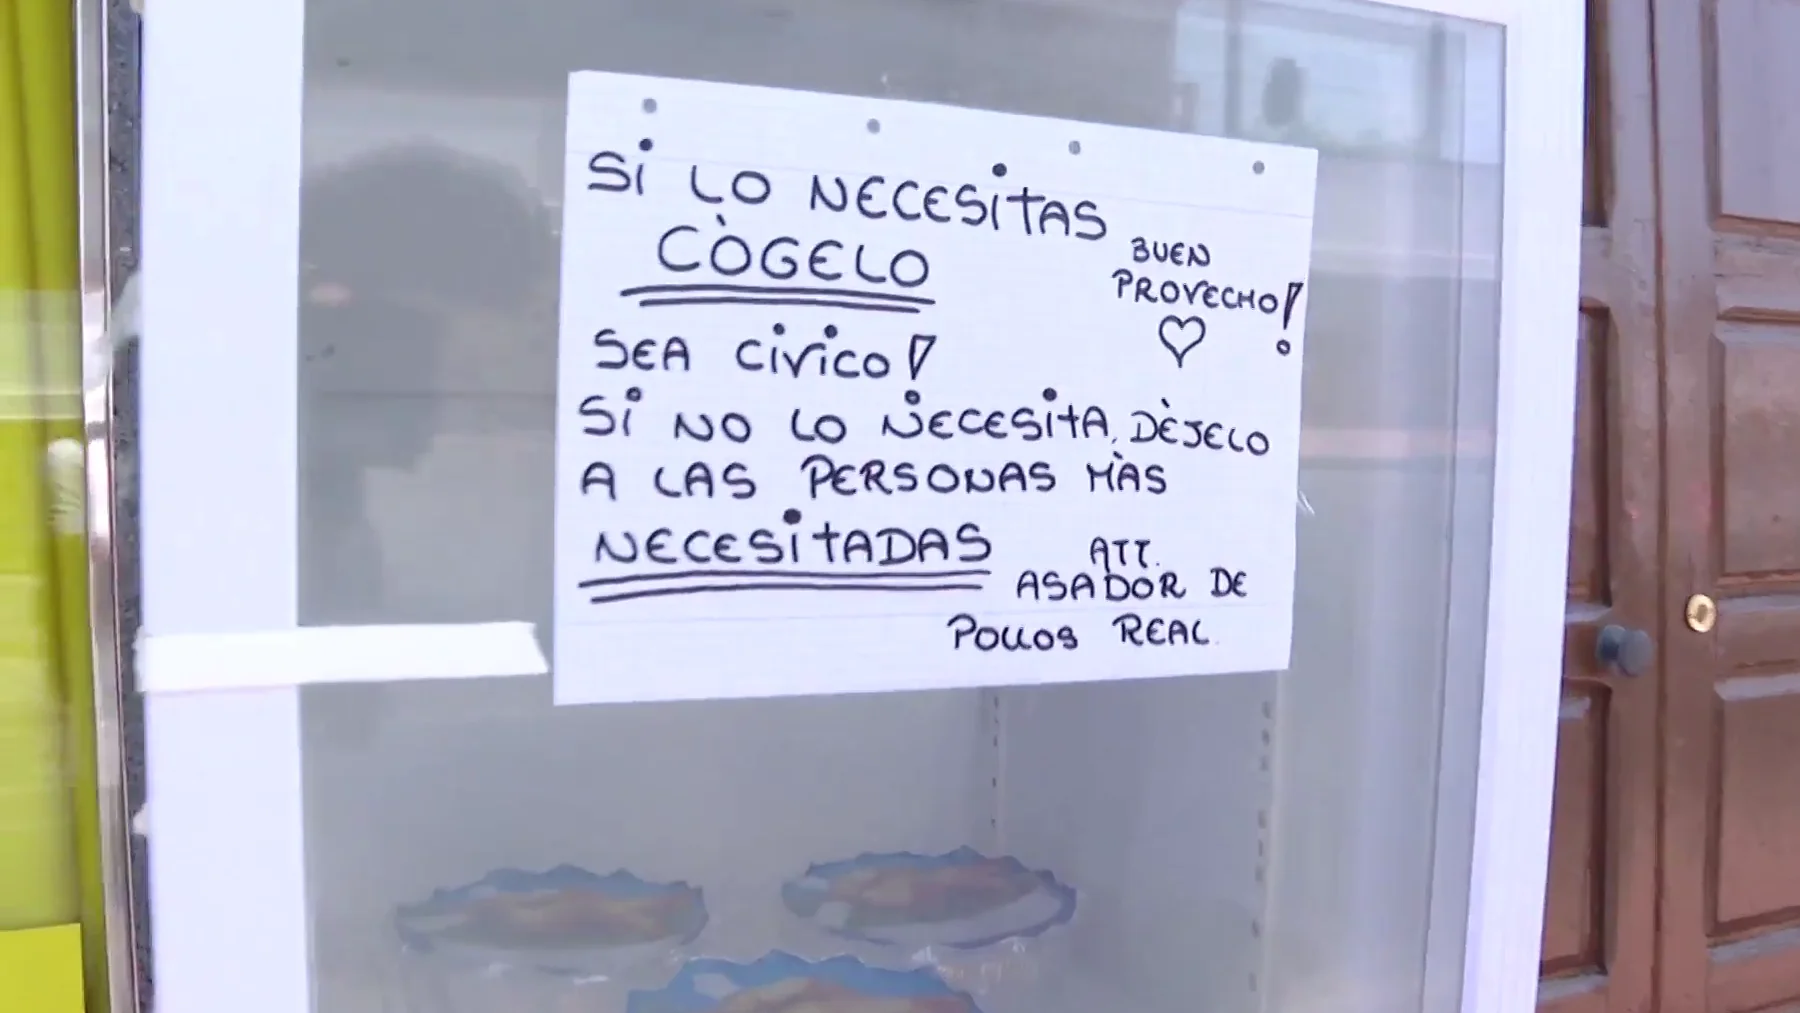 Si LO NECESiTAS
CÒGELO
BUEN
PROVECHO!
SEA CiViCO!
Si NO LO NECESiTA, DÈJELO
A LAS PERSONAS MÀS
NECESiTADAS
ATT.
ASADOR DE
POLLOS REAL.